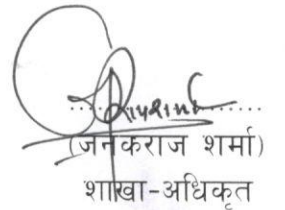 (जनकराज शर्मा)
शाखा-अधिकृत